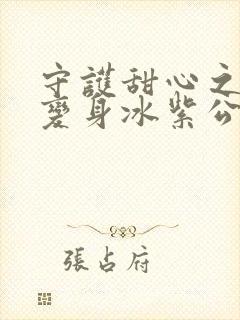 守護甜心之
變身冰紫公
張占府